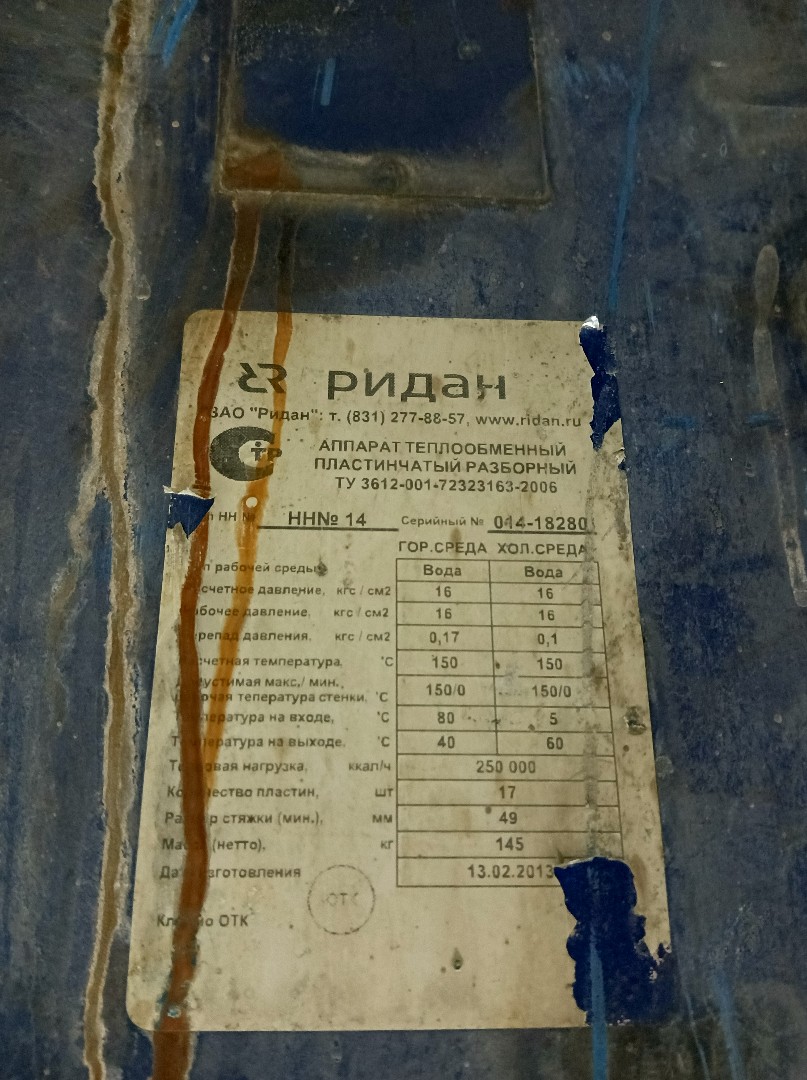 Ридан
ЗАО "Ридан": т. (831) 277-88-57, www.ridan.ru
АППАРАТ ТЕПЛООБМЕННЫЙ
ПЛАСТИНЧАТЫЙ РАЗБОРНЫЙ
ТУ 3612-001-72323163-2006
НН № НН№ 14 Серийный № 014-18280
ГОР.СРЕДА ХОЛ.СРЕДА
рабочей среды Вода Вода
давление, кгс / см2 16 16
давление, кгс / см2 16 16
давления, кгс / см2 0,17 0,1
температура, °С 150 150
макс./ мин.,
тепература стенки, °С 150/0 150/0
на входе, °С 80 5
на выходе, °С 40 60
нагрузка, ккал/ч 250 000
пластин, шт 17
стяжки (мин.), мм 49
(нетто), кг 145
13.02.2013
ОТК
ОТК